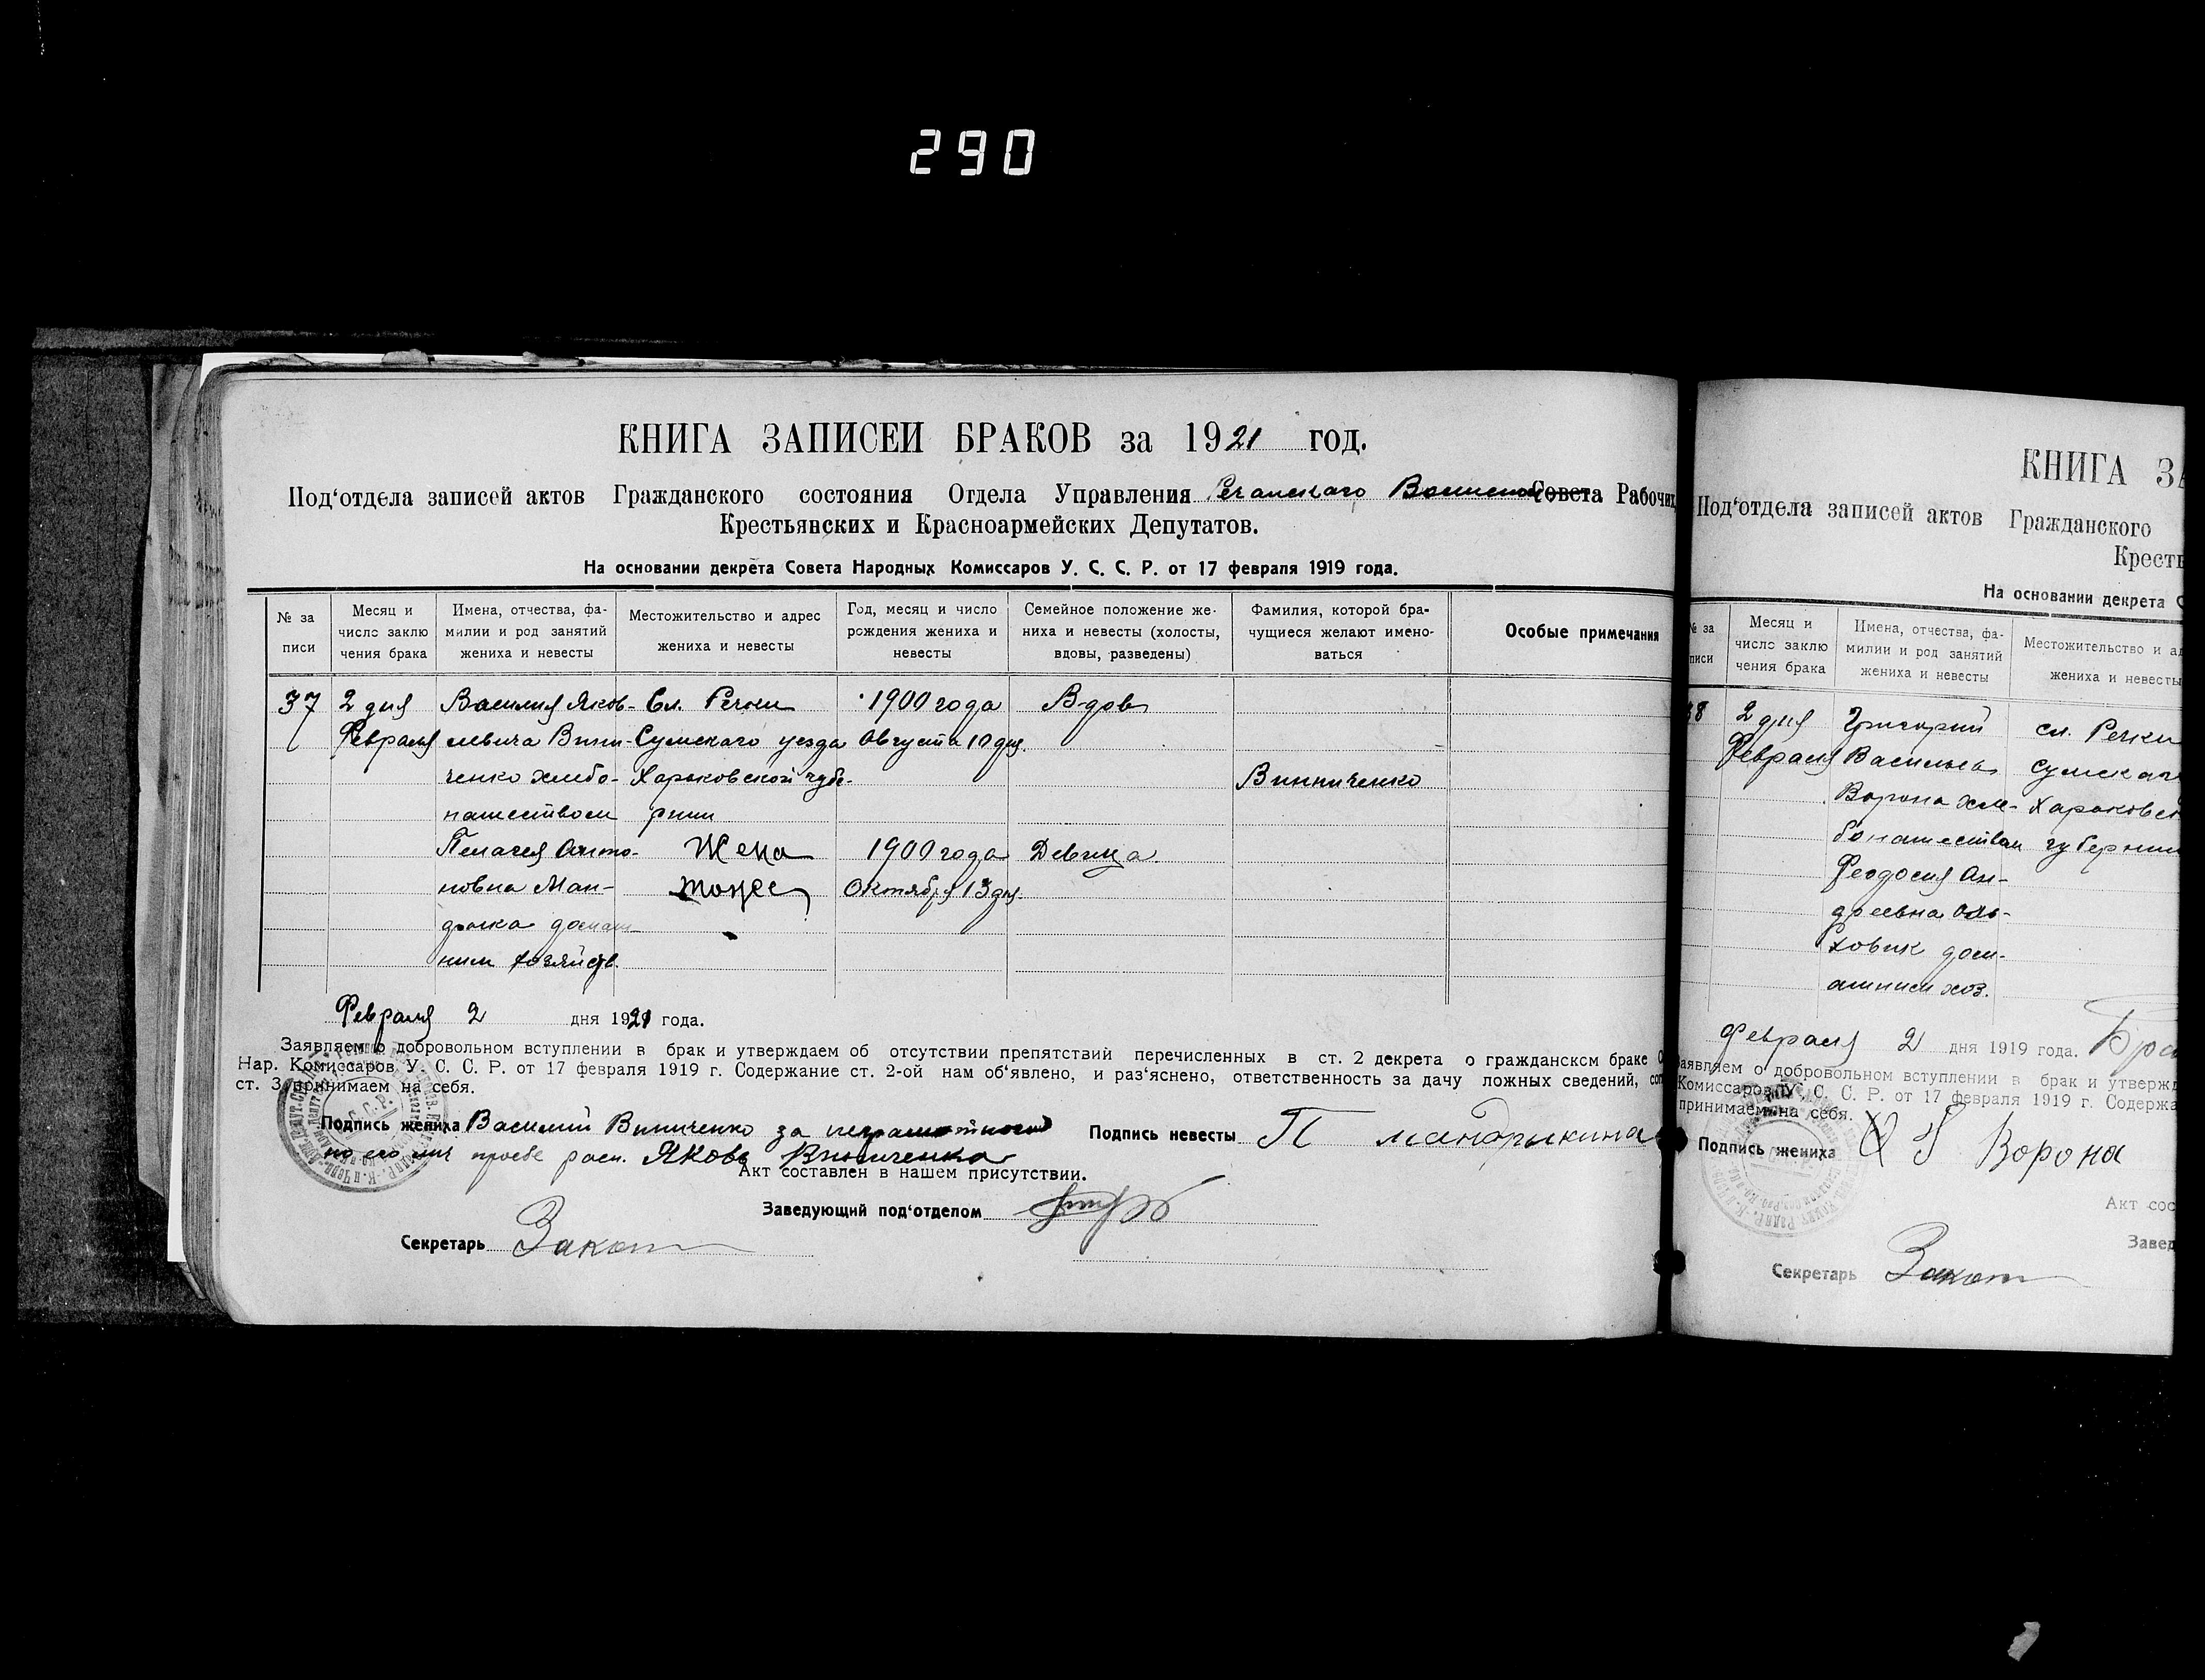 290
КНИГА ЗАПИСЕИ БРАКОВ за 1921 год.
Под'отдела записей актов Гражданского состояния Отдела Управления Совета Рабочих
Крестьянских и Красноармейских Депутатов.
На основании декрета Совета Народных Комиссаров У. С. С. Р. от 17 февраля 1919 года.
№ за писи
Месяц и число заклю чения брака
Имена, отчества, фа- милии и род занятий жениха и невесты
Местожительство и адрес жениха и невесты
Год, месяц и число рождения жениха и невесты
Семейное положение же- ниха и невесты (холосты, вдовы, разведены)
Фамилия, которой бра- чущиеся желают имено- ваться
Особые примечания
37 2 дня Василия Яков- Сл. Речки 1900 года Вдов
Февраля левича Вини- Сумскаго уезда Августа 10 дня.
ченко хлебо- Харьковской губе- Винниченко
пашеством рнии
Пелагея Анто- Жена 1900 года Девица
новна Ман- тоже Октября 13 дня.
дрыка домаш-
ним хозяйств.
Февраля 2 дня 1921 года.
Заявляем о добровольном вступлении в брак и утверждаем об отсутствии препятствий перечисленных в ст. 2 декрета о гражданском браке
Нар. Комиссаров У. С. С. Р. от 17 февраля 1919 г. Содержание ст. 2-ой нам об'явлено, и раз'яснено, ответственность за дачу ложных сведений,
ст. 3 принимаем на себя.
Подпись жениха Василий Виниченко за неграмотного Подпись невесты П мандрыкина
по его лич просбе расп. Яковъ Виниченко
Акт составлен в нашем присутствии.
Заведующий под'отделом
Секретарь
КНИГА ЗА
Под'отдела записей актов Гражданского
Кресть
На основании декрета С
№ за писи
Месяц и число заклю чения брака
Имена, отчества, фа- милии и род занятий жениха и невесты
Местожительство и ад жениха и невесты
38 2 дня Григорий сл. Речки
Февраля Васильев Сумскаг
Ворона хле- Харьковск
бопашеством губернии
Феодосия Ан-
дреевна Оль-
ховик дом-
ашним хоз.
Февраля 2 дня 1919 года.
Заявляем о добровольном вступлении в брак и утвержд
Комиссаров У. С. С. Р. от 17 февраля 1919 г. Содержа
принимаем на себя.
Подпись жениха Ворона
Акт сос
Завед
Секретарь